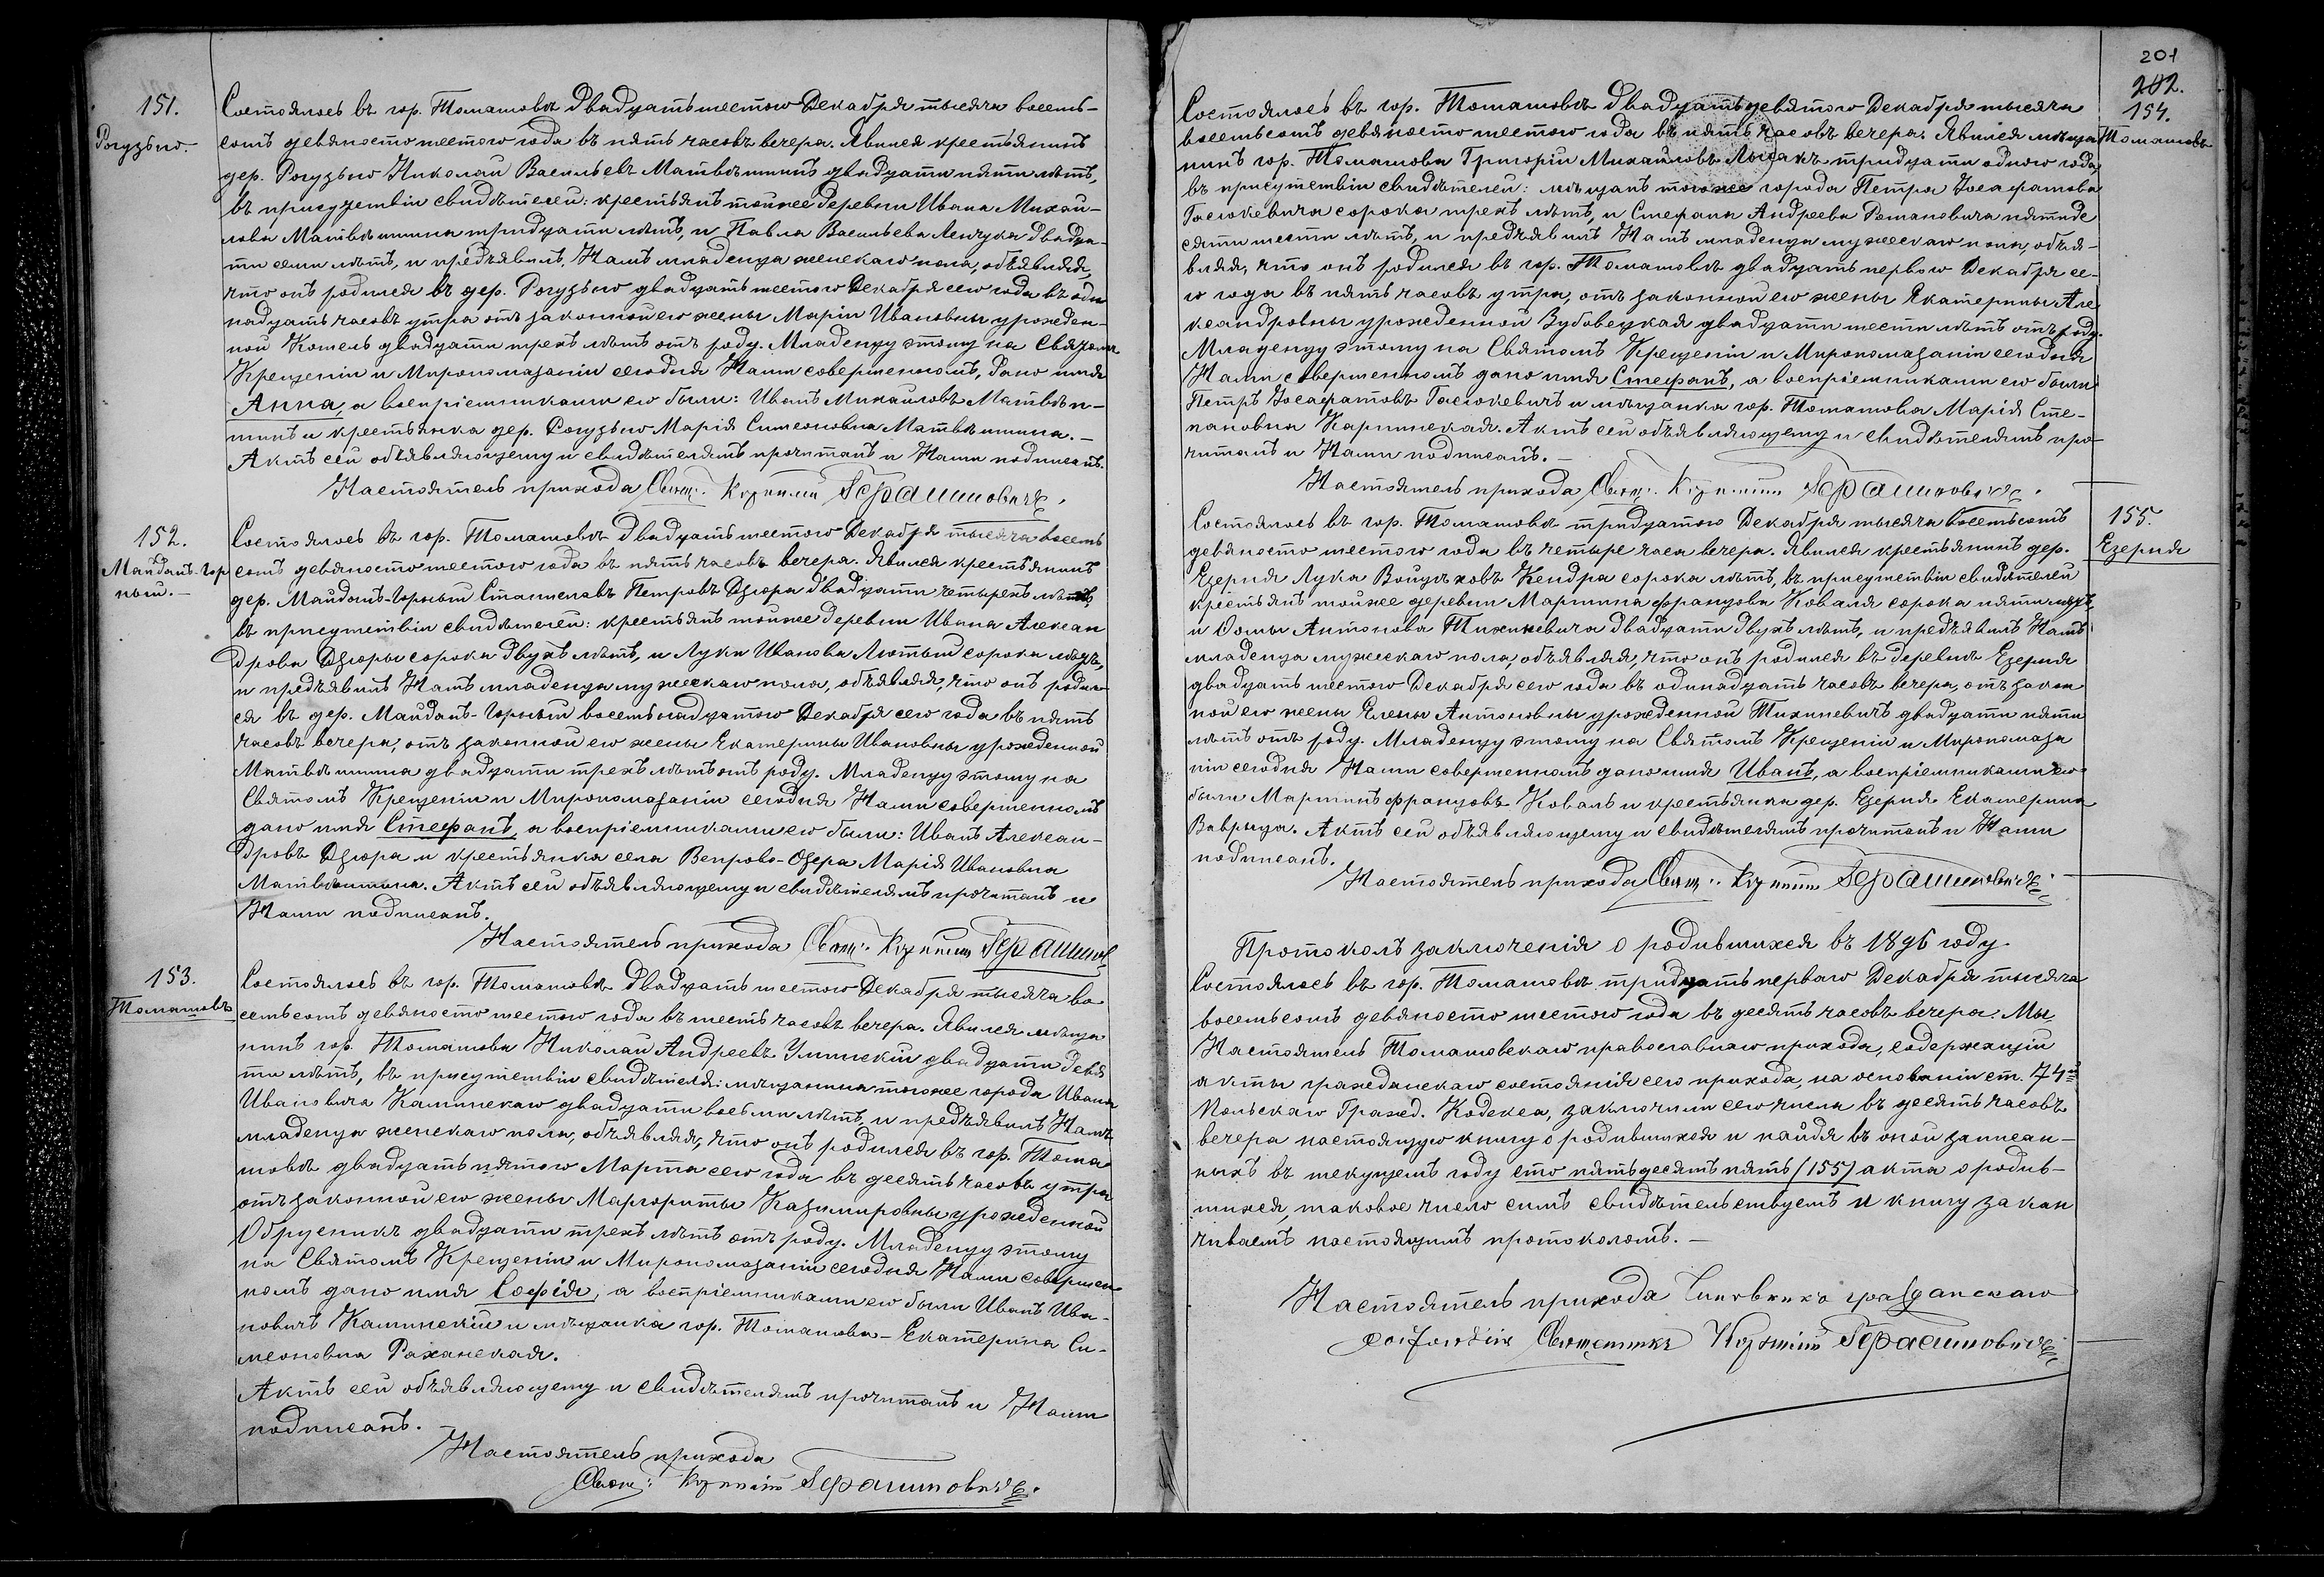 151.
Рогузьно.
Состоялось въ гор. Томашовѣ двадцать шестого Декабря тысяча восемь-
сотъ девяносто шестого года въ пять часовъ вечера. Явился крестьянинъ
дер. Рогузьно Николай Васильевъ Матвѣишинъ двадцати пяти лѣтъ,
въ присутствіи свидѣтелей: крестьянъ тойже деревни Ивана Михай-
лова Матвѣишина тридцати лѣтъ, и Павла Васильева Ленчука двадца-
ти семи лѣтъ, и предъявилъ Намъ младенца женскаго пола, объявляя,
что онъ родился въ дер. Рогузьно двадцать шестого Декабря сего года въ оди
надцать часовъ утра отъ законной его жены Маріи Ивановны урожден-
ной Комель двадцати трехъ лѣтъ отъ роду. Младенцу этому на Святомъ
Крещеніи и Миропомазаніи сегодня Нами совершенномъ, дано имя
Анна, а воспріемниками его были: Иванъ Михайловъ Матвѣи-
шинъ и крестьянка дер. Рогузьно Марія Симеоновна Матвѣишина.-
Актъ сей объявляющему и свидѣтелямъ прочитанъ и Нами подписанъ.
Настоятель прихода Свящ. Герасимовичъ.
152.
Майданъ-Гор
ный.-
Состоялось въ гор. Томашовѣ двадцать шестого Декабря тысяча восемь
сотъ девяносто шестого года въ пять часовъ вечера. Явился крестьянинъ
дер. Майданъ-Горный Станиславъ Петровъ Дзюра двадцати четырехъ лѣтъ,
въ присутствіи свидѣтелей: крестьянъ тойже деревни Ивана Алексан
дрова Дзюры сорока двухъ лѣтъ, и Луки Иванова Лютый сорока лѣтъ,
и предъявилъ Намъ младенца мужескаго пола, объявляя, что онъ родил
ся въ дер. Майданъ-Горный восемьнадцатого Декабря сего года въ пять
часовъ вечера, отъ законной его жены Екатерины Ивановны урожденной
Матвѣишина двадцати трехъ лѣтъ отъ роду. Младенцу этому на
Святомъ Крещеніи и Миропомазаніи сегодня Нами совершенномъ
дано имя Стефанъ, а воспріемниками его были: Иванъ Алексан-
дровъ Дзюра и крестьянка села Вепрово-Озера Марія Ивановна
Матвѣишина. Актъ сей объявляющему и свидѣтелямъ прочитанъ и
Нами подписанъ.
Настоятель прихода Свящ. Герасимов
153.
Томашовъ
Состоялось въ гор. Томашовѣ двадцать шестого Декабря тысяча во
семьсотъ девяносто шестого года въ шесть часовъ вечера. Явился мѣща
нинъ гор. Томашова Николай Андреевъ Улинскій двадцати девя
ти лѣтъ, въ присутствіи свидѣтеля: мѣщанина тогоже города Ивана
Ивановича Калинскаго двадцати восьми лѣтъ, и предъявилъ Намъ
младенца женскаго пола, объявляя, что онъ родился въ гор. Тома
шовѣ двадцать пятого Марта сего года въ десять часовъ утра
отъ законной его жены Маргориты Казимировны урожденной
Обрусникъ двадцати трехъ лѣтъ отъ роду. Младенцу этому
на Святомъ Крещеніи и Миропомазаніи сегодня Нами совершен
номъ дано имя Софія, а воспріемниками его были Иванъ Ива-
новичъ Калинскій и мѣщанка гор. Томашова - Екатерина Си-
меоновна Раханская.
Актъ сей объявляющему и свидѣтелямъ прочитанъ и Нами
подписанъ.
Настоятель прихода
Свящ. Герасимовичъ.
201
202.
154.
Томашовъ
Состоялось въ гор. Томашовѣ двадцать девятого Декабря тысяча
восемьсотъ девяносто шестого года въ пять часовъ вечера. Явился мѣща
нинъ гор. Томашова Григорій Михайловъ Лысакъ тридцати одного года,
въ присутствіи свидѣтелей: мѣщанъ тогоже города Петра Іосафатова
Гаслокевича сорока трехъ лѣтъ, и Стефана Андреева Романовича пятиде
сяти шести лѣтъ, и предъявилъ Намъ младенца мужескаго пола, объя-
вляя, что онъ родился въ гор. Томашовѣ двадцать перваго Декабря се-
го года въ пять часовъ утра, отъ законной его жены Екатерины Але
ксандровны урожденной Зубовецкая двадцати шести лѣтъ отъ роду.
Младенцу этому на Святомъ Крещеніи и Миропомазаніи сегодня
Нами совершенномъ дано имя Стефанъ, а воспріемниками его были
Петръ Іосафатовъ Гаслокевичъ и мѣщанка гор. Томашова Марія Сте-
пановна Карпинская. Актъ сей объявляющему и свидѣтелямъ про-
читанъ и Нами подписанъ.-
Настоятель прихода Свящ. Герасимовичъ.
155.
Езерня
Состоялось въ гор. Томашовѣ тридцатого Декабря тысяча восемьсотъ
девяносто шестого года въ четыре часа вечера. Явился крестьянинъ дер.
Езерня Лука Войцѣховъ Кендра сорока лѣтъ, въ присутствіи свидѣтелей
крестьянъ тойже деревни Мартина Францова Коваля сорока пяти лѣтъ,
и Ѳомы Антонова Тихиневича двадцати двухъ лѣтъ, и предъявилъ Намъ
младенца мужескаго пола, объявляя, что онъ родился въ деревнѣ Езерня
двадцать шестого Декабря сего года въ одинадцать часовъ вечера, отъ закон
ной его жены Елены Антоновны урожденной Тихиневичъ двадцати пяти
лѣтъ отъ роду. Младенцу этому на Святомъ Крещеніи и Миропомаза
ніи сегодня Нами совершенномъ дано имя Иванъ, а воспріемниками его
были Мартинъ Францовъ Коваль и крестьянка дер. Езерня Екатерина
Ваврыца. Актъ сей объявляющему и свидѣтелямъ прочитанъ и Нами
подписанъ.
Настоятель прихода Свящ. Герасимовичъ.
Протоколъ заключенія о родившихся въ 1896 году.
Состоялось въ гор. Томашовѣ тридцать перваго Декабря тысяча
восемьсотъ девяносто шестого года въ десять часовъ вечера. Мы
Настоятель Томашовскаго православнаго прихода, содержащій
акты гражданскаго состоянія сего прихода, на основаніи ст. 74й
Польскаго Гражд. Кодекса, заключили сего числа въ десять часовъ
вечера настоящую книгу о родившихся и найдя въ оной записан-
ныхъ въ текущемъ году сто пятьдесятъ пять (155) акта о родив-
шихся, таковое число симъ свидѣтельствуемъ и книгу закан
чиваемъ настоящимъ протоколомъ.-
Настоятель прихода Чиновникъ гражданскаго
состоянія Священникъ Герасимовичъ